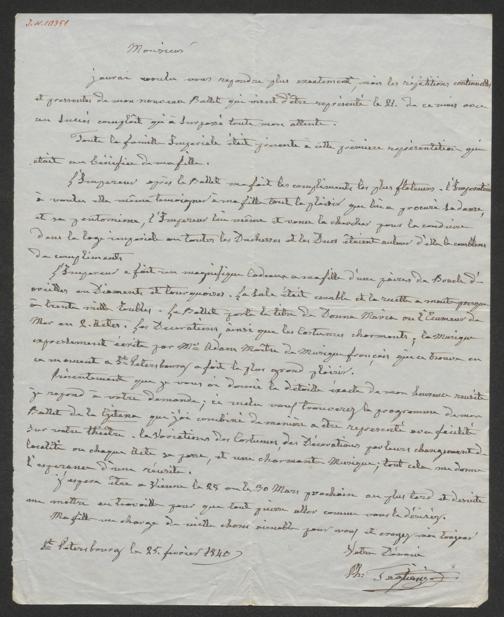 J.N. 10351
Monsieur
j'aurai voulu vous repondre plus exactement, mais les répétitions continuelles
et pressentes de mon nouveau Ballet qui vient d'être représenté le 21. de ce mois avec
un succès complêt qui à surpassé toute mon attente.
Toute la famille Imperiale était presente a cette première représentation qui
était au bénéfice de ma fille.
L'Empereur après le Ballet m'a fait les compliments les plus flateurs. l'Imperatrice
à voulu elle même temoigner à ma fille tout le plaisir que lui a procuré sa danse,
et sa pantomime, l'Empereur lui même est venu la chercher pour la conduire
dans la loge imperiale ou toutes les Duchesses et les Ducs étaient autour d'elle la comblère
de compliments
L'Empereur a fait un magnifique Cadeaux a ma fille d'une paires de Boucle d'
oreilles en Diamants et turquoises. La Sale était comble et la recette a monté presque
à trente mille Roubles. Le Ballet porte le titre de Donna Maria ou l'Ecumeur de
Mer en 2. Actes. Les Decorations, ainsi que les Costumes charments; la Musique
expressément écrite par Mr. Adam Maitre de Musique français qui ce trouve en
ce moment a St. Petersbourg a fait le plus grand plaisir.
Présentement que je vous ai donné le détaille éxacte de mon heureuse réussite
je repond à votre demande; ci inclu vous trouverez le programme de mon
Ballet de la Gitana que j'ai combiné de maniere a être representé avec facilité
sur votre théâtre. la Variations des Costumes des Décorations par leurs changement de
localité ou chaque Acte se passe, et une charmante Musique; tout cela me donne
l'espérance d'une réussite.
J'espere être a Vienne le 25 ou le 30 Mars prochain au plus tard et desuite
me mettre au travaille pour que tout puisse aller comme vous le désirez.
Ma fille me charge de mille choses aimable pour vous, et croyez moi toujour
Votre Dévoué
St. Petersbourg le 25. février 1840
Ph. Taglioni